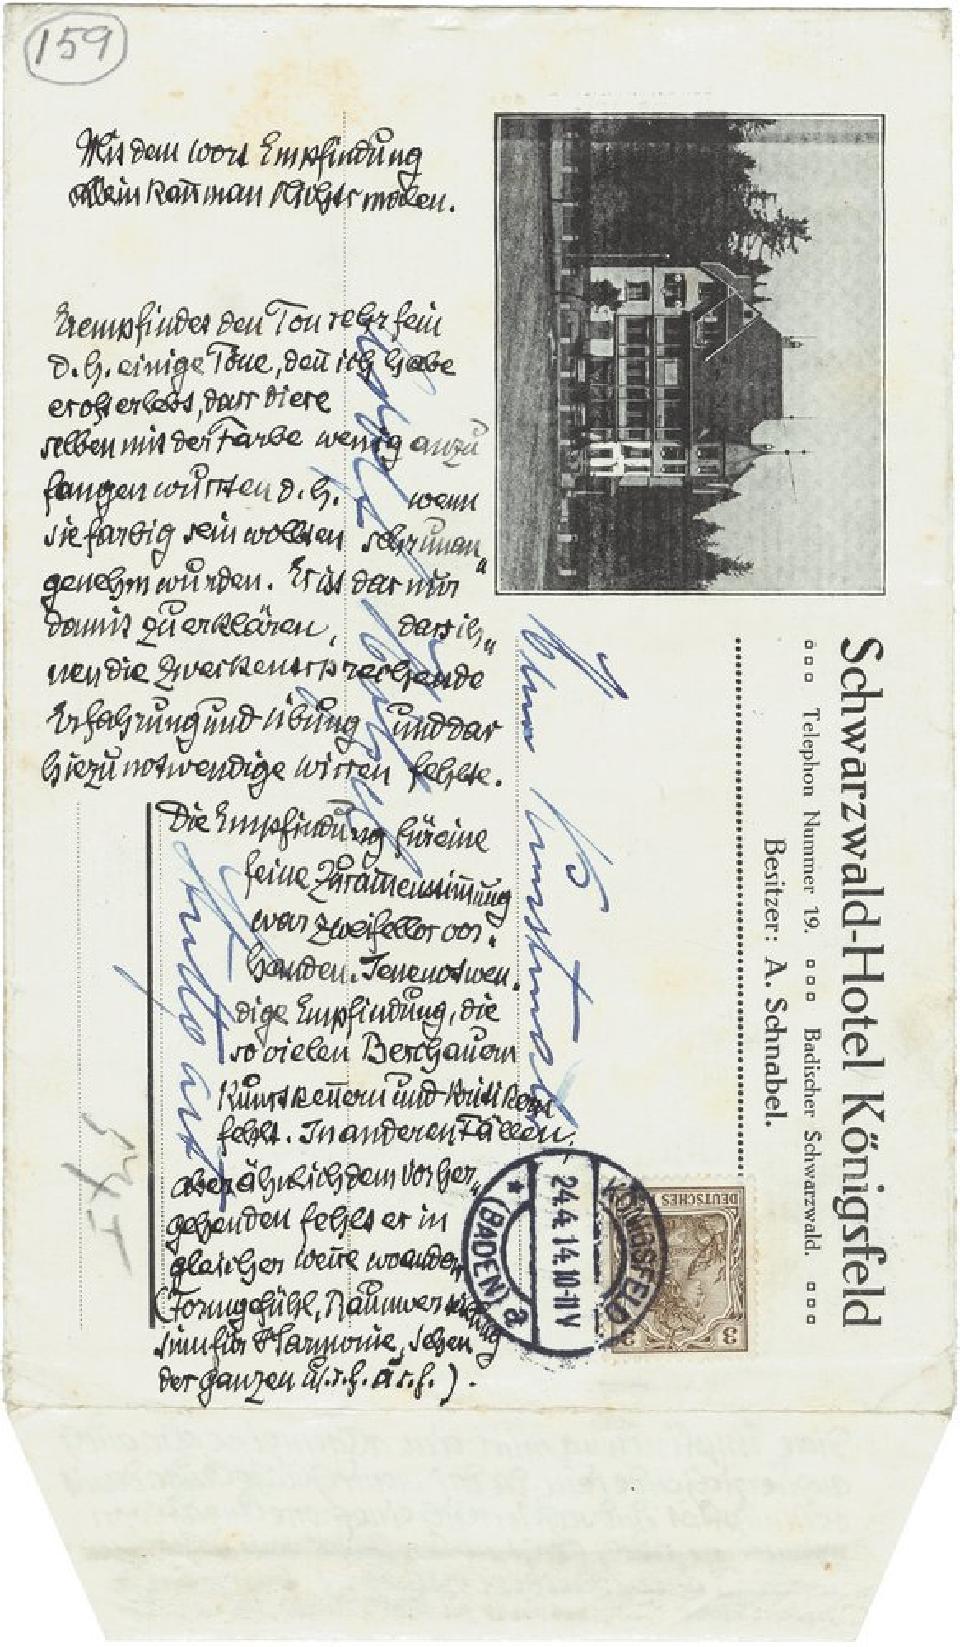 159
Mit dem wort Empfindung
allein kan̅ man nichts malen.
Er empfindet den Ton sehr fein
d. h. einige Töne, den̅ ich habe
es oft erlebt, dass diese
selben mit der Farbe wenig anzu
fangen wussten d. h. wenn
sie farbig sein wollten sehr unan„
genehm wurden. Es ist das nur
damit zu erklären, dass ih„
nen die zweckentsprechende
Erfahrung und übung und das
hiezu notwendige wissen fehlte.
Die Empfindung für eine
feine Zusam̅enstim̅ung
war zweifellos vor„
handen. Jene notwen„
dige Empfindung, die
so vielen Beschauern
Kunstken̅ern und Kritikern
fehlt. In anderen Fällen,
aber ähnlich dem vorher„
gehenden fehlt es in
gleicher weise
(Formgefühl,
sinn für Harmonie, sehen
des ganzen u.s.f. u.s.f.).
Schwarzwald-Hotel Königsfeld
▫▫▫ Telephon Nummer 19. ▫▫▫ Badischer Schwarzwald. ▫▫▫
Besitzer: A. Schnabel.
Adolf Hölzel
Stuttgart
KÖNIGSFELD
24.4.14.10-11V
* (BADEN) a
DEUTSCHES
3 3